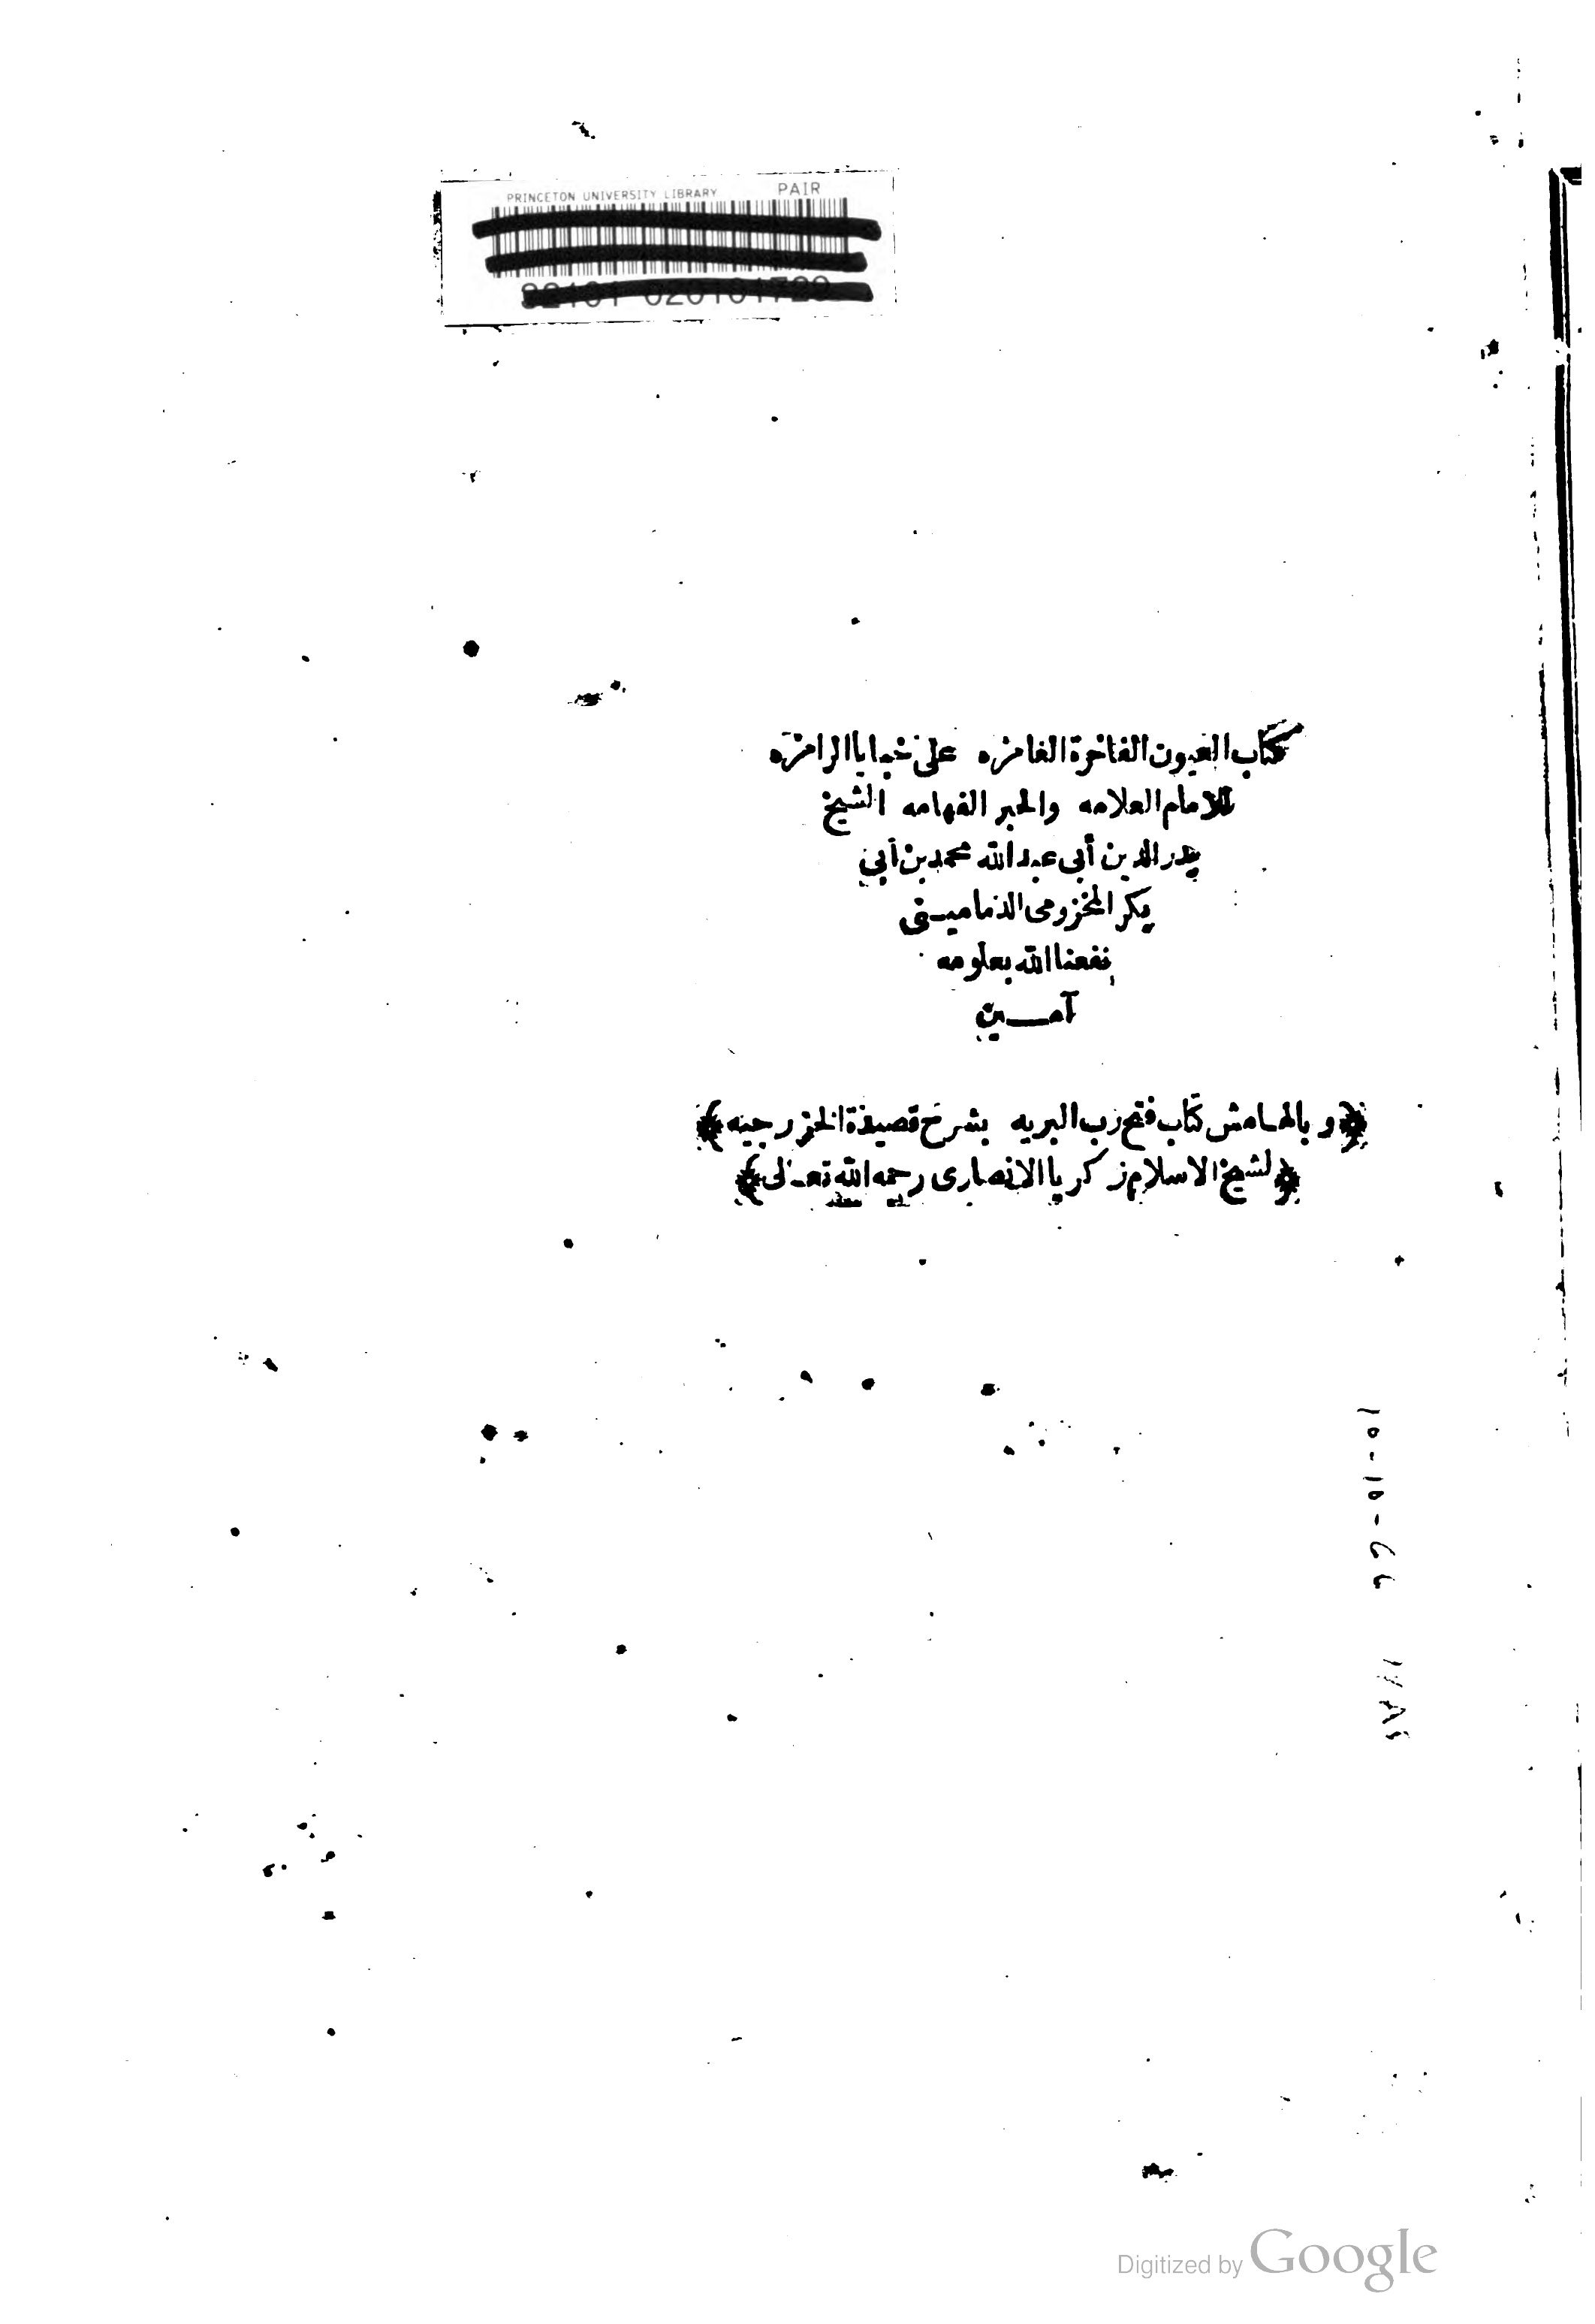 PRINCETON UNIVERSITY LIBRARY PAIR
كتاب العيون الفاخرة الغامزه على خبايا الرامزه
للامام العلامه والحبر الفهامه الشيخ
بدر الدين أبى عبد الله محمد بن أبى
بكر المخزومى الدمامينى
نفعنا الله بعلومه
آمــين
﴿وبالهامش كتاب فتح رب البريه بشرح قصيدة الخزرجيه﴾
﴿لشيخ الاسلام زكريا الانصارى رحمه الله تعالى﴾
Digitized by Google